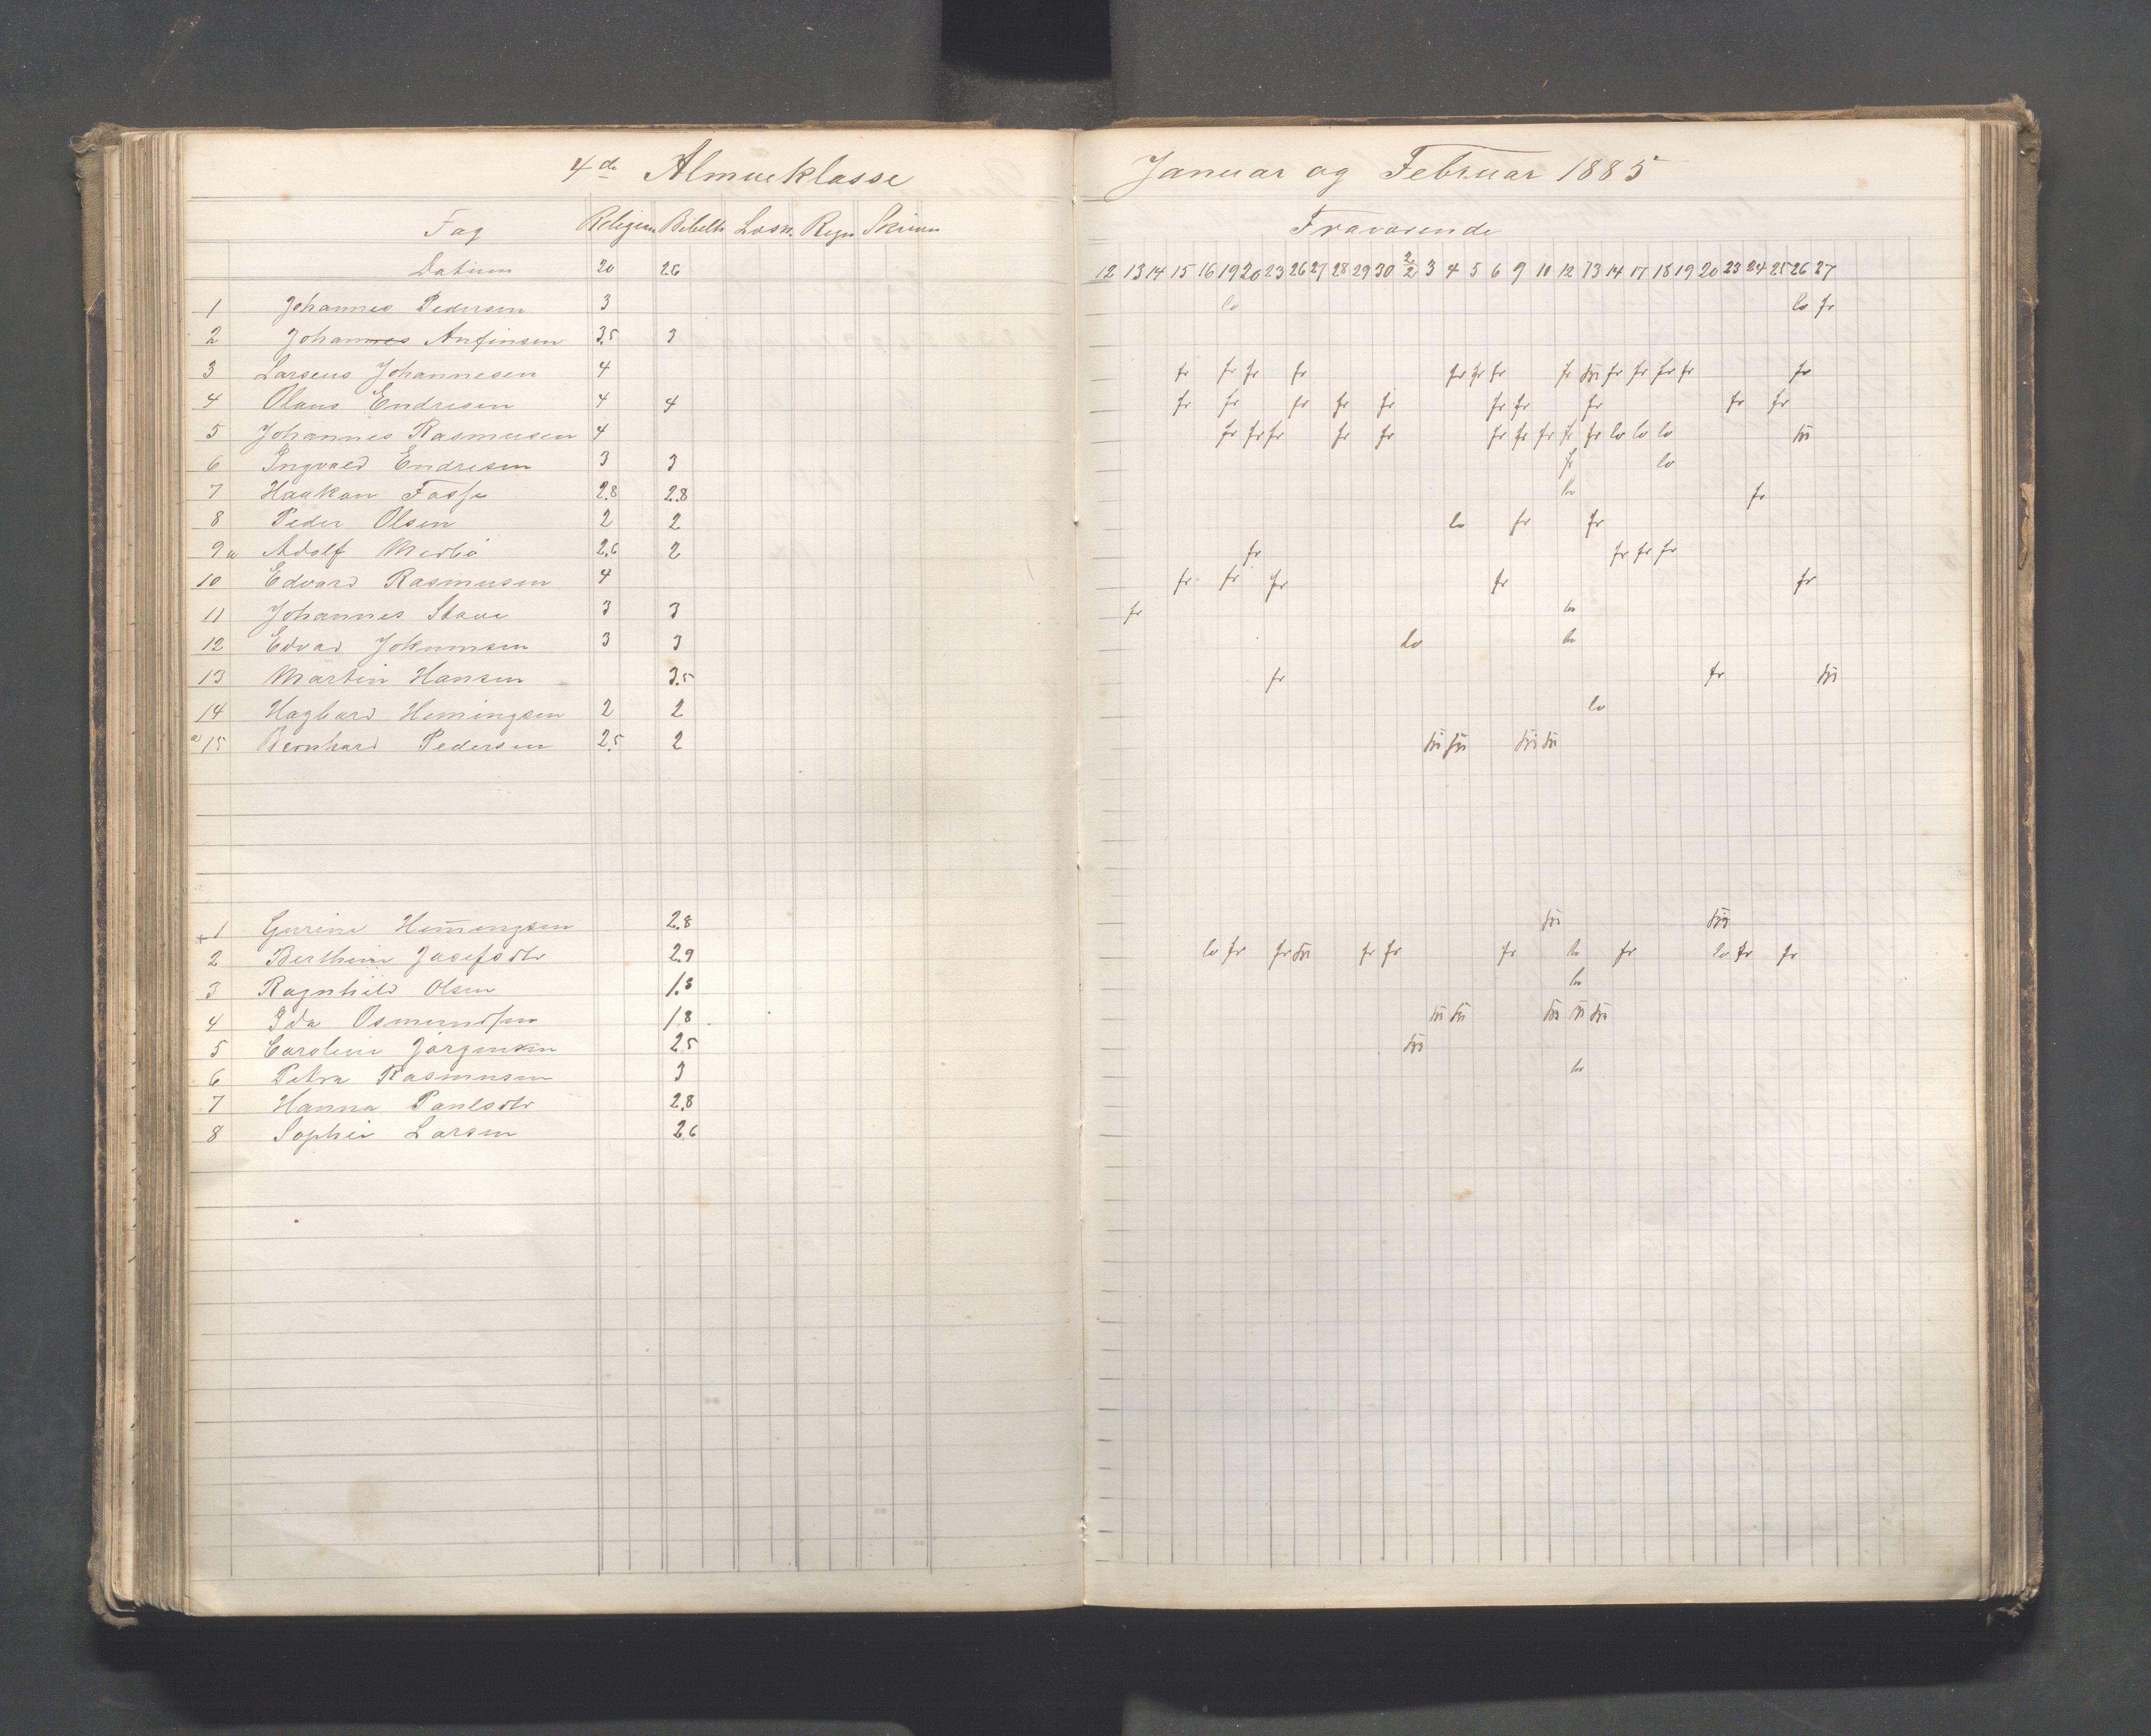 4de Almueklasse
Fag Religion Bibelh Læsn. Regn Skrivn
Datum 20 26
1 Johannes Pedersen 3
2 Johannes Anfinsen 3,5 3
3 Larseus Johannesen 4
4 Olaus Endresen 4 4
5 Johannes Rasmusen 4
6 Ingvald Endresen 3 3
7 Haakon Fosse 2,8 2,8
8 Peder Olsen 2 2
9 a Adolf 2,6 2
10 Edvard Rasmusen 4
11 Johannes Stave 3 3
12 Edvad Jokumsen 3 3
13 Martin Hansen 3.5
14 Hagbard Hemingsen 2 2
a 15 Bernhard Pedersen 2,5 2
+1 Gurine Hem̄ingsen 2.8
2 Berthine Josefsdtr 2.9
3 Ragnhild Olsen 1.8
4 Ida Osmundsen 1.8
5 Caroline Jørgensen 2.5
6 Petra Rasmusen 3
7 Hanna Paulsdtr 2.8
8 Sophie Larsen 2.6
Januar og Februar 1885
Fraværende
12 13 14 15 16 19 20 23 26 27 28 29 30 2/2 3 4 5 6 9 10 12 13 14 17 18 19 20 23 24 25 26 27
lo lo fr
fr fr fr fr fr fr fr fr sÿ fr fr fr fr fr
fr fr fr fr fr fr fr fr fr fr
fr fr fr fr fr fr fr fr fr fr lo lo lo sÿ
fr lo
lo fr
lo fr fr
fr fr fr fr
fr fr fr fr fr
fr lo
lo lo
fr fr sÿ
lo
sÿ sÿ sÿ sÿ
sÿ sÿ
lo fr fr sÿ fr fr fr lo fr lo fr fr
lo
sÿ sÿ sÿ sÿ sÿ
sÿ
lo